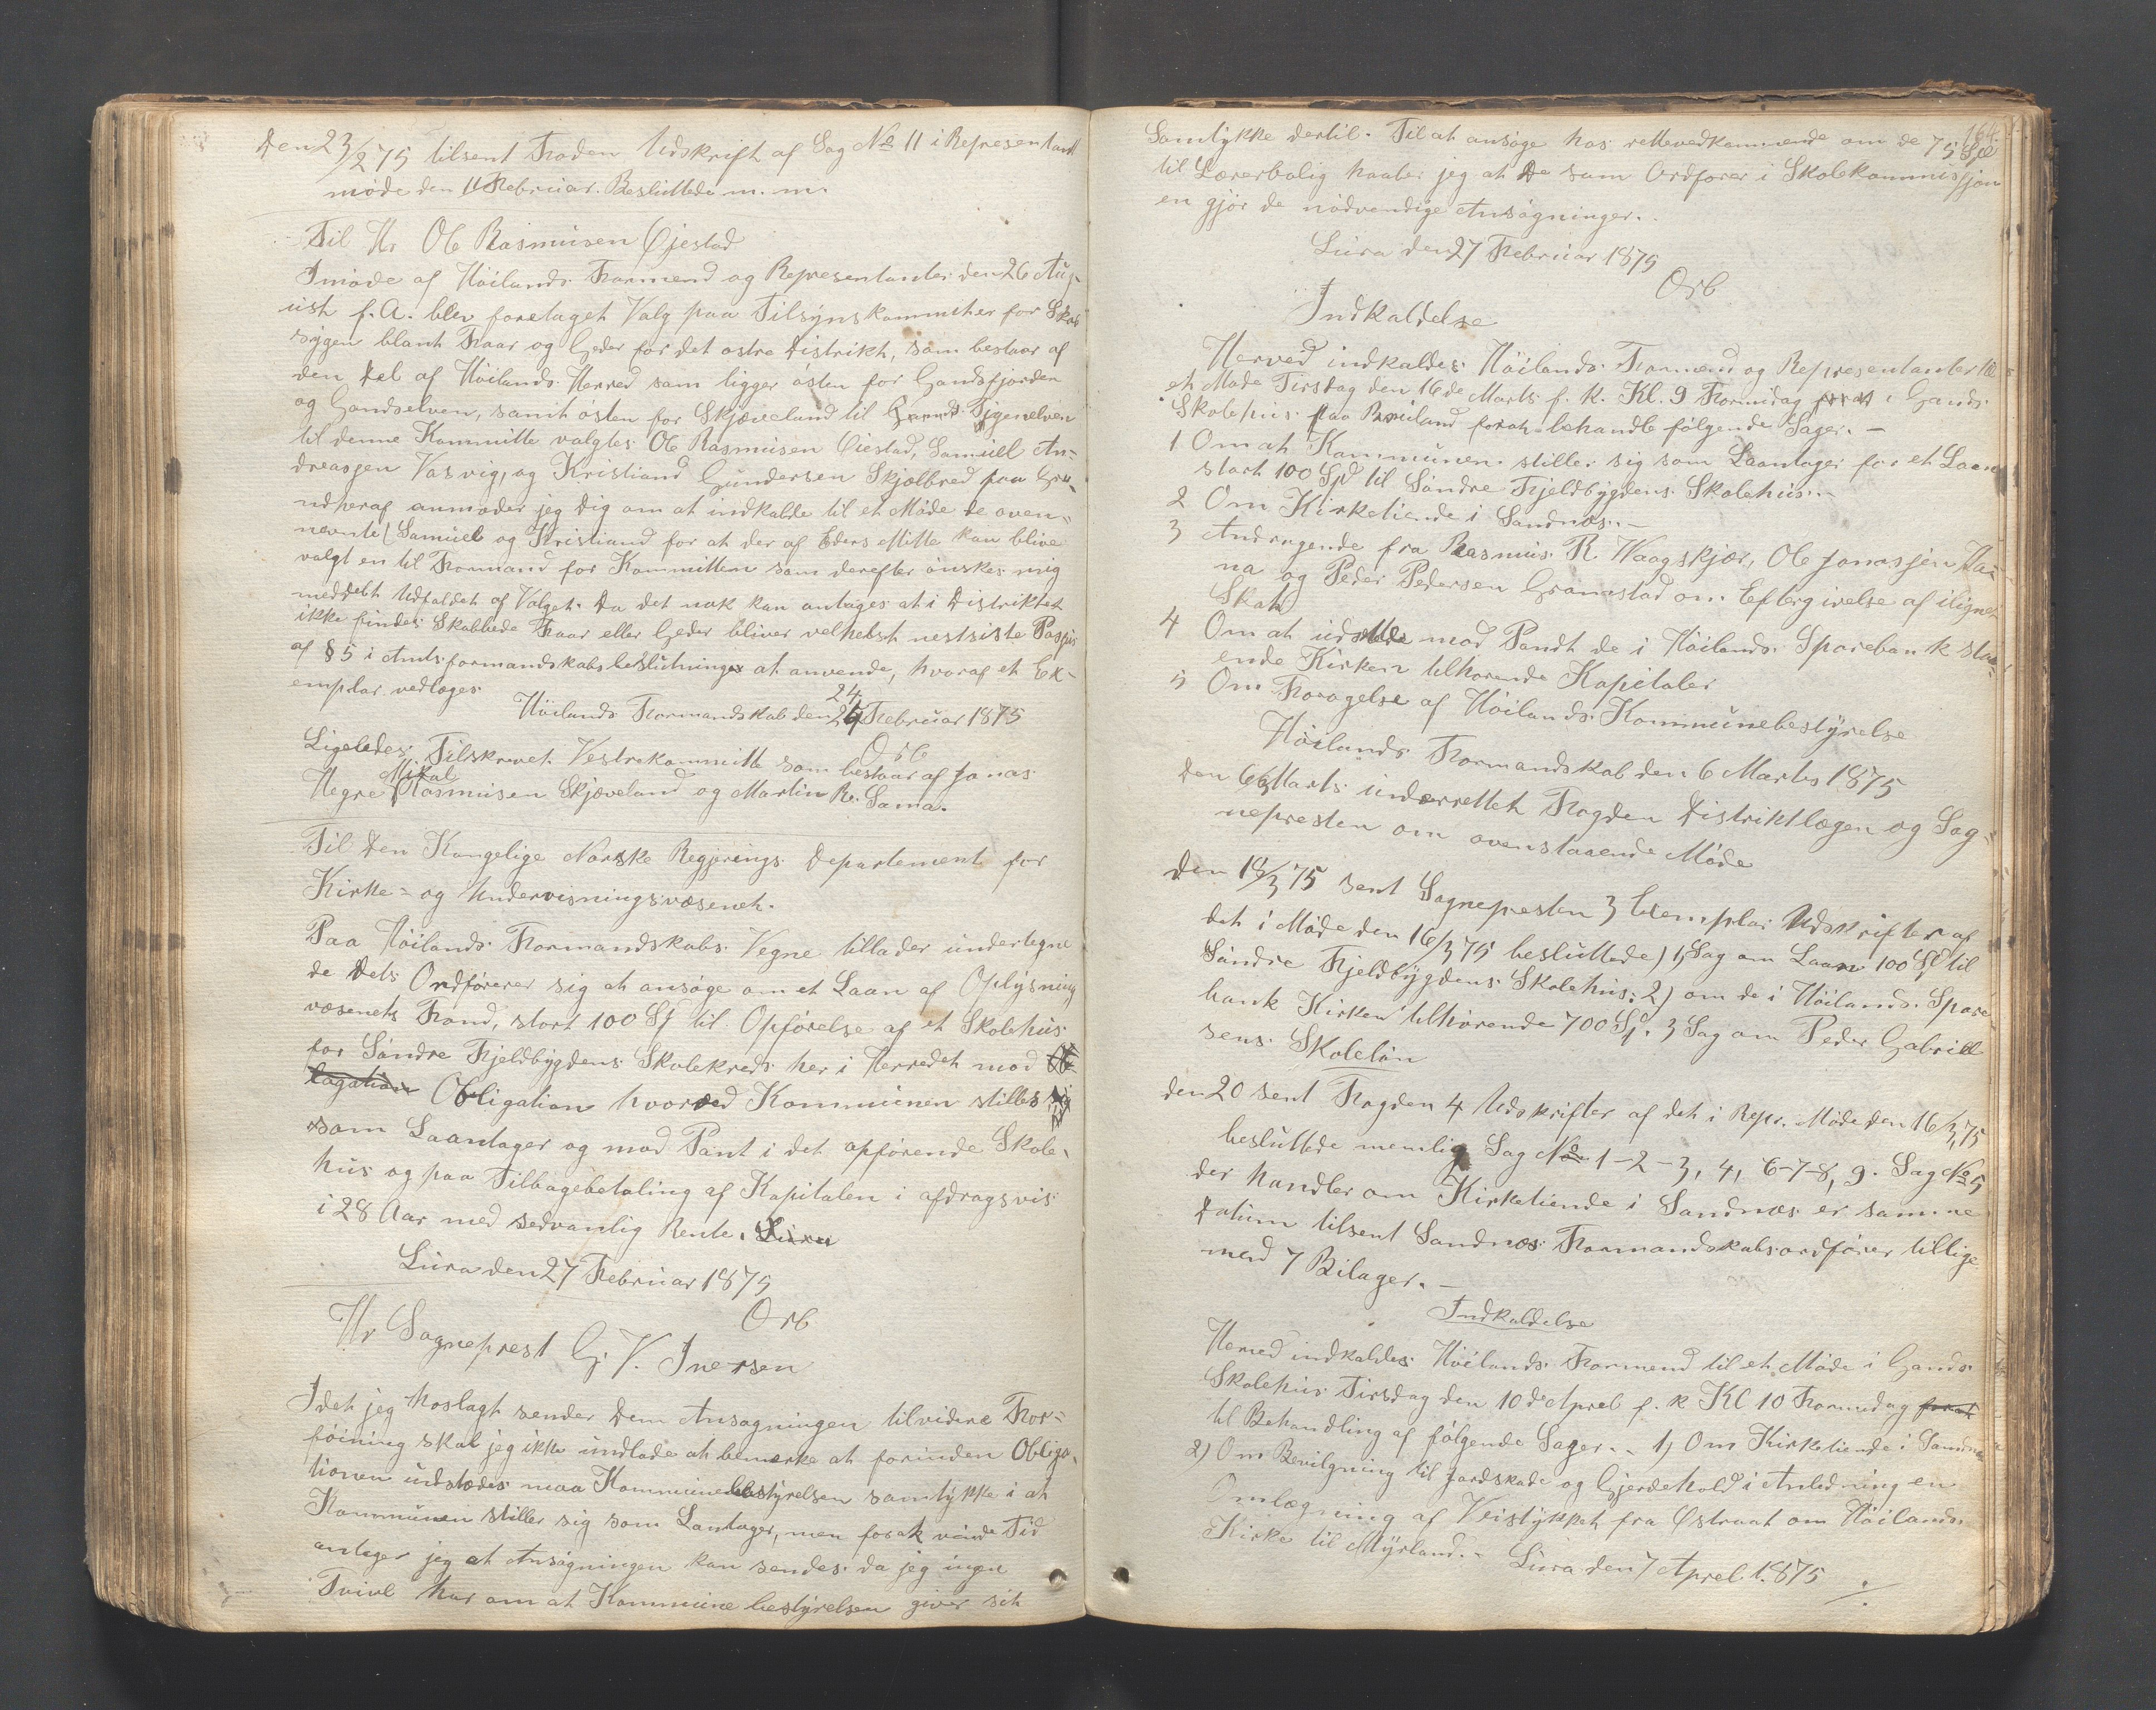 Den 23/2 75 tilsent Fogden Udskrift af Sag No 11 i Representant
møde den 11 Februar. Besluttede m. m.
Til Hr Ole Rasmusen Øiestad
I møde af Höilands Formend og Representanter den 26 Aug-
ust f. A. blev foretaget Valg paa Tilsynskommiteer for Skab
sygen blant Faar og Geder for det østre Distrikt, som bestaar af
den Del af Höilands Herred som ligger östen for Gandsfjorden
og Gandselven, samt östen for Skjæveland til Figenelven
til denne Kommitte valgtes Ole Rasmusen Öiestad, Samuel An-
dreasjen Vasvig, og Kristiand Gundersen Skjølbred paa Gru-
ndheraf anmoder jeg Dig om at indkalde til et Møde de oven-
nevnte (Samuel og Kristiand for at der af Eders Mitte kan blive
valgt en til Formand for Kommitten som derefter önskes mig
meddelt Udfaldet af Valget. Da det nok kan antages at i Distriktet
ikke findes Skabbede Faar eller Geder bliver velhelst nestsiste Passus
af § 5 i Amtsformandskabsbeslutninger at anvende, hvoraf et Ek-
emplar vedlæges
Höilands Formandskab den 24 Februar 1875
Orb
Ligeledes Tilskrevet Vestrekommitte som bestaar af Jonas
Hegre Mikal Rasmusen Skjæveland og Martin Rs. Soma.
Til Den Kongelige Norske Regjerings Departement for
Kirke- og Undervisningsvæsenet.
Paa Höilands Formandskabs Vegne tillader undertegne
de Dets Ordförerer sig at ansøge om et Laan af Oplysning
væsenets Fond, stort 100 Sp til Opförelse af et Skolehus
for Söndre Fjeldbygdens Skolekreds her i Herredet mod
Obligation hvorved Kommunen stilles sig
som Laantager og mod Pant i det opförende Skole-
hus og paa Tilbagebetaling af Kapitalen i afdragsvis
i 28 Aar med sedvanlig Rente. Lura
Lura den 27 Februar 1875
Orb
Hr Sogneprest G. V. Iversen
Idet jeg hoslagt sender Dem Ansøgningen tilvidere For-
föining skal jeg ikke undlade at bemærke at forinden Obliga-
tionen udstædes maa Kommunebestyrelsen samtykke i at
Kommunen stiller sig som Lantager, men forat vinde Tid
antager jeg at Ansögningen kan sendes da jeg ingen
Tvivl har om at Kommunebestyrelsen giver sit
164
Samtykke dertil. Til at ansöge hos rettevedkommende om de 75 Spd
til Lærerbolig haaber jeg at De som Ordforer i Skolekommissjon
en gjör de nödvendige Ansögninger.
Lura den 27 Februar 1875
Orb
Indkaldelse
Herved indkaldes Höilands Formend og Representanter til
et Möde Tirsdag den 16de Marts f. k. Kl. 9 Formidag i Gands
Skolehus paa Brueland forat behandle fölgende Sager.-
1 Om at Kommunen stiller sig som Laantager for et Laan
stort 100 Spd til Söndre Fjeldbygdens Skolehus.-
2 Om Kirketiende i Sandnæs.-
3 Andragende fra Rasmus R. Waagskjær, Ole Jonasjen Ha-
na og Peder Pedersen Gramstad om Eftergivelse af ilignet
Skat
4 Om at udsette mod Pandt de i Höilands Sparebank staa-
ende Kirken tilhorende Kapitaler
5 Om Forogelse af Höilands Kommunebestyrelse
Höilands Formandskab den 6 Martes 1875
Den 6 Marts underrettet Fogden Distriktlægen og Sog-
nepresten om ovenstaaende Möde
Den 18/3 75 sent Sognepresten 3 Exemplar Udskrifter af
det i Möde den 16/3 75 besluttede) 1, Sag om Laan 100 Spd til
Söndre Fjeldbygdens Skolehus: 2) om de i Höilands Spare
bank Kirken tilhörende 700 Sp. 3 Sag om Peder Gabriel
sens Skolelön
den 20 sent Fogden 4 Udskrifter af det i Repr. Møde den 16/3, 75
besluttede nemlig Sag No 1-2-3, 4, 6-7-8, 9. Sag No 5
der handler om Kirketiende i Sandnæs er samme
Datum tilsent Sandnæs Formandskabsordförer tillige
med 7 Bilager.-
Indkaldelse
Herved indkaldes Höilands Formend til et Möde i Gands
Skolehus Tirsdag den 10de Aprel f. k Kl 10 Formidag forat
til Behandling af fölgende Sager.- 1) Om Kirketiende i Sandnæs
2) Om Bevilgning til jordskade og Gjerdehold i Anledning en
Omlægning af Veistykket fra Østraat om Höilands
Kirke til Myrland.- Lura den 7 Aprel 1875 ./.